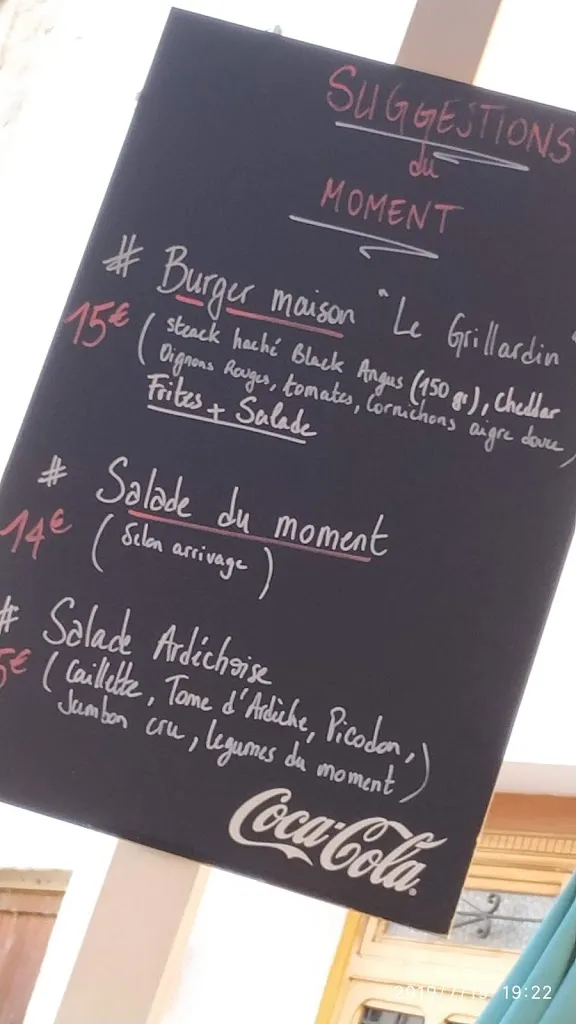 SUGGESTIONS
du
MOMENT
# Burger maison "Le Grillardin"
15€ (steack haché Black Angus (150 gr), Cheddar
Oignons Rouges, tomates, Cornichons aigre douce)
Frites + Salade
# Salade du moment
14€ (Selon arrivage)
# Salade Ardéchoise
5€ (Caillette, Tome d'Ardèche, Picodon,
Jambon cru, légumes du moment)
Coca-Cola
19:22